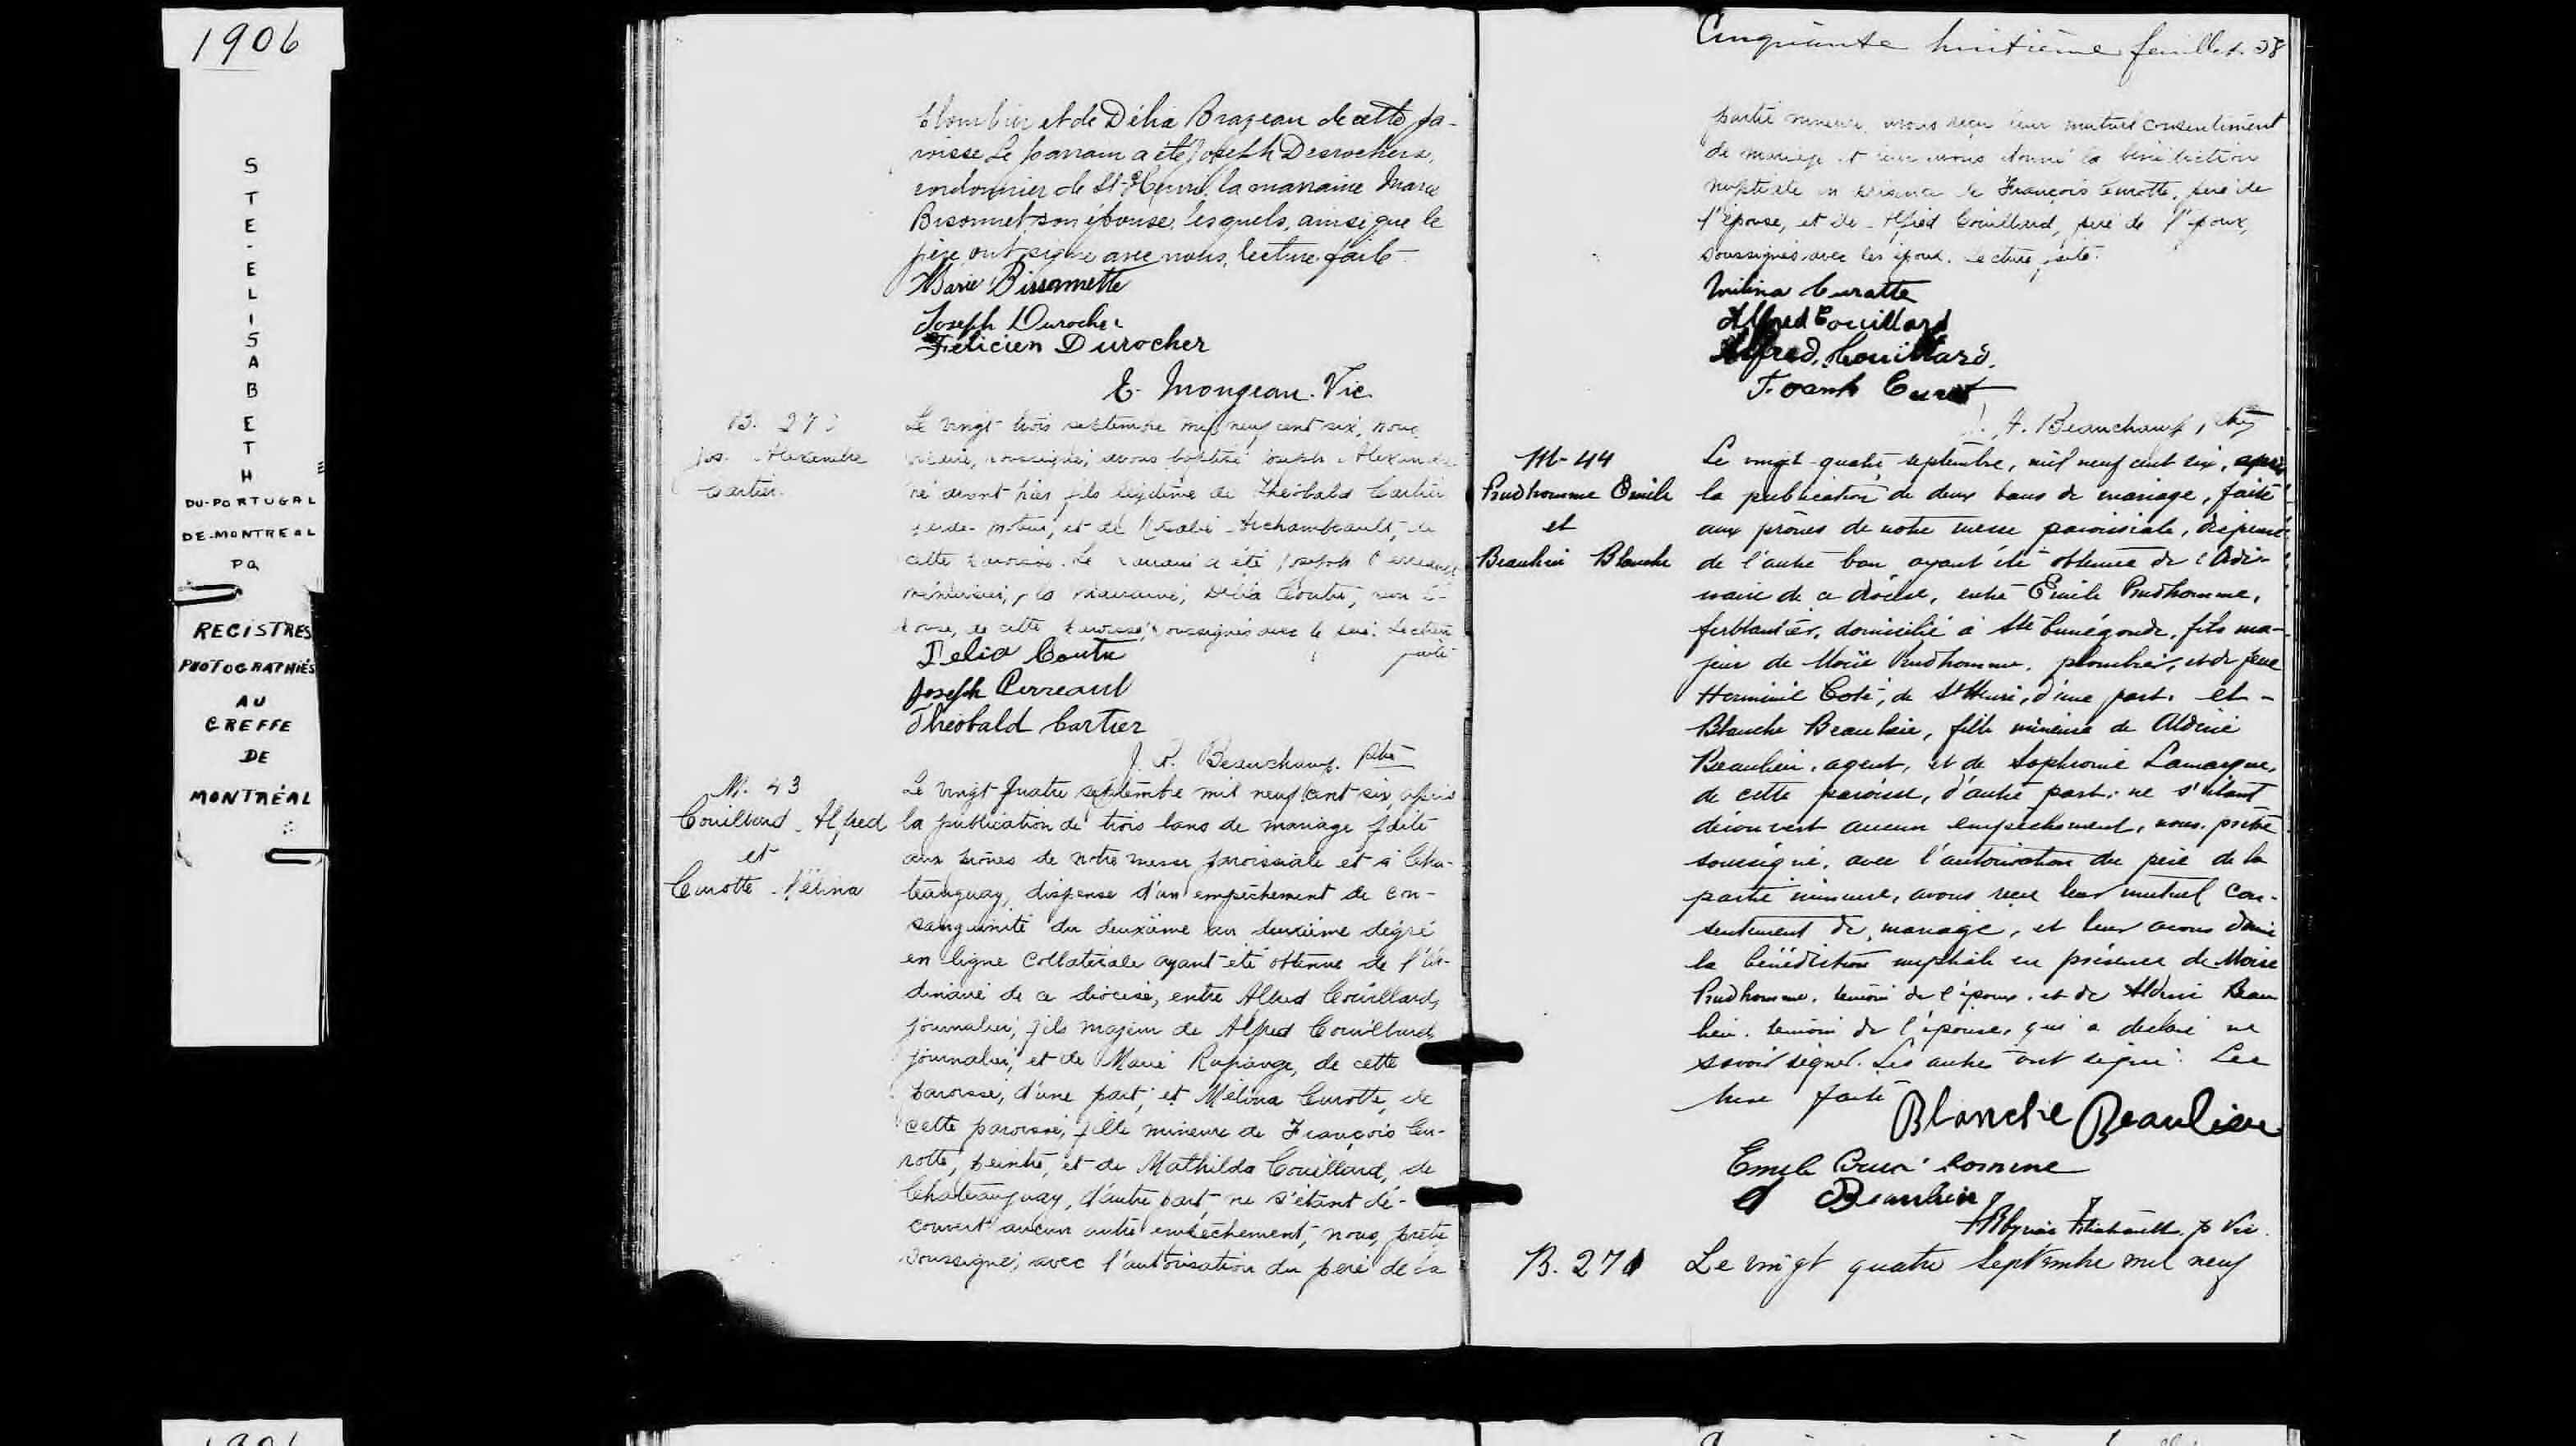 1906
STE-ELISABETH
DU-PORTUGAL
DE-MONTREAL
PQ
REGISTRES
PHOTOGRAPHIÉS
AU
GREFFE
DE
MONTRÉAL
plombier et de Délia Brazeau de cette pa-
roisse Le parrain a été Joseph Desrochers,
cordonnier de St-Henri, la marraine Marie
Bisonnet son épouse, lesquels, ainsi que le
père, ont signé avec nous, lecture faite.
Marie Bissonnette
Joseph Durocher
Félicien Durocher
E. Mongeau. Vic.
B. 27
Jos. Alexandre
Cartier
Le vingt-trois septembre mil neuf cent six, nous
soussigné, avons baptisé Joseph Alexandre
né avant hier, fils légitime de Théobald Cartier
et de Rosalie Archambeault, de
cette paroisse. Le parrain a été Joseph Perreault
menuisier, la marraine, Délia Coutu, son é-
pouse, de cette paroisse, soussignés avec le père. Lecture
faite
Delia Coutu
Joseph Perreault
Théobald Cartier
J. A. Beauchamp, ptre
M. 43
Couillard Alfred
et
Curotte Mélina
Le vingt quatre septembre mil neuf cent six, après
la publication de trois bans de mariage faite
aux prônes de notre messe paroissiale et à Cha-
teauguay, dispense d'un empêchement de con-
sanguinité du deuxième au deuxième dégré
en ligne collatérale ayant été obtenue de l'Or-
dinaire de ce diocèse, entre Alfred Couillard,
journalier, fils majeur de Alfred Couillard,
journalier, et de Marie Rapange, de cette
paroisse, d'une part; et Mélina Curotte, de
cette paroisse, fille mineure de François Cu-
rotte, peintre, et de Mathilda Couillard, de
Chateauguay, d'autre part, ne s'étant dé-
couvert aucun autre empêchement, nous, prêtre
soussigné, avec l'autorisation du père de la
Cinquante huitième feuillet. 58
partie mineure, avons reçu leur mutuel consentement
de mariage et leur avons donné la bénédiction
nuptiale en présence de François Curotte, père de
l'épouse, et de Alfred Couillard, père de l'époux,
soussignés avec les époux. Lecture faite.
Mélina Curatte
Alfred Couillard
Alfred Couillard.
Frank Curot
J. A. Beauchamp, ptre
M-44
Prudhomme Emile
et
Beaulieu Blanche
Le vingt-quatre septembre, mil neuf cent six, après
la publication de deux bans de mariage, faite
aux prônes de notre messe paroissiale, dispense
de l'autre ban ayant été obtenue de l'Ordi-
naire de ce diocèse, entre Émile Prudhomme,
ferblantier, domicilié à Ste Cunégonde, fils ma-
jeur de Moïse Prudhomme, plombier, et de feue
Herminie Coté, de St Henri, d'une part. et -
Blanche Beaulieu, fille mineure de Aldéric
Beaulieu, agent, et de Sophronie Lamarque,
de cette paroisse, d'autre part: ne s'étant
découvert aucun empêchement, nous, prêtre
soussigné, avec l'autorisation du père de la
partie mineure, avons reçu leur mutuel con-
sentement de mariage, et leur avons donné
la bénédiction nuptiale en présence de Moïse
Prudhomme, témoin de l'époux, et de Aldéric Beau
lieu, témoin de l'épouse, qui a déclaré ne
savoir signer. Les autres ont signé. Lec
ture faite
Blanche Beaulieu
Emile Prud'homme
A Beaulieu
p Vic.
B. 271
Le vingt quatre septembre mil neuf